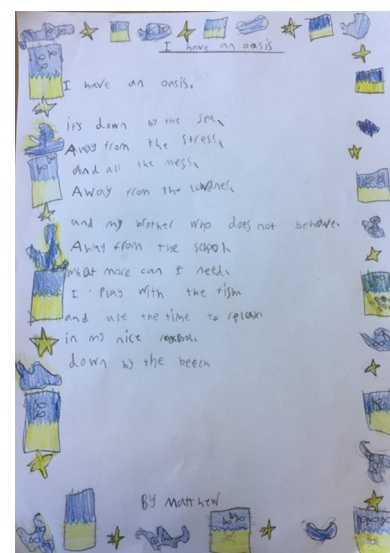 I have an oasis
I have an oasis.
it's down by the sea,
Away from the stress,
and all the mess,
Away from the
and my brother who does not behave.
Away from the school,
what more can I need,
I play with the fish,
and use the time to relax
in my nice
down by the beech
By Matthew